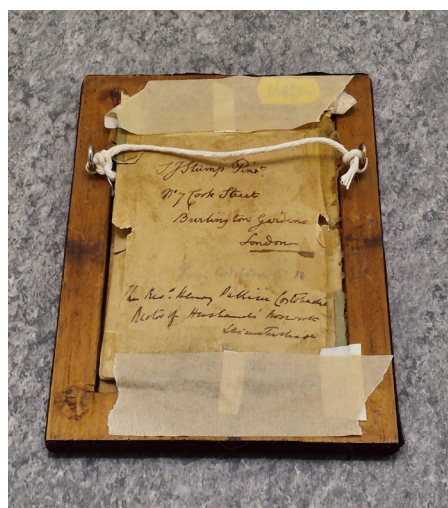 S J Stump Pinxt.
No 7 Cork Street
Burlington Gardens
London
The Revd. Henry Pallisir Costobadie
Rector of Husbands' Bosworth
Leicestershire